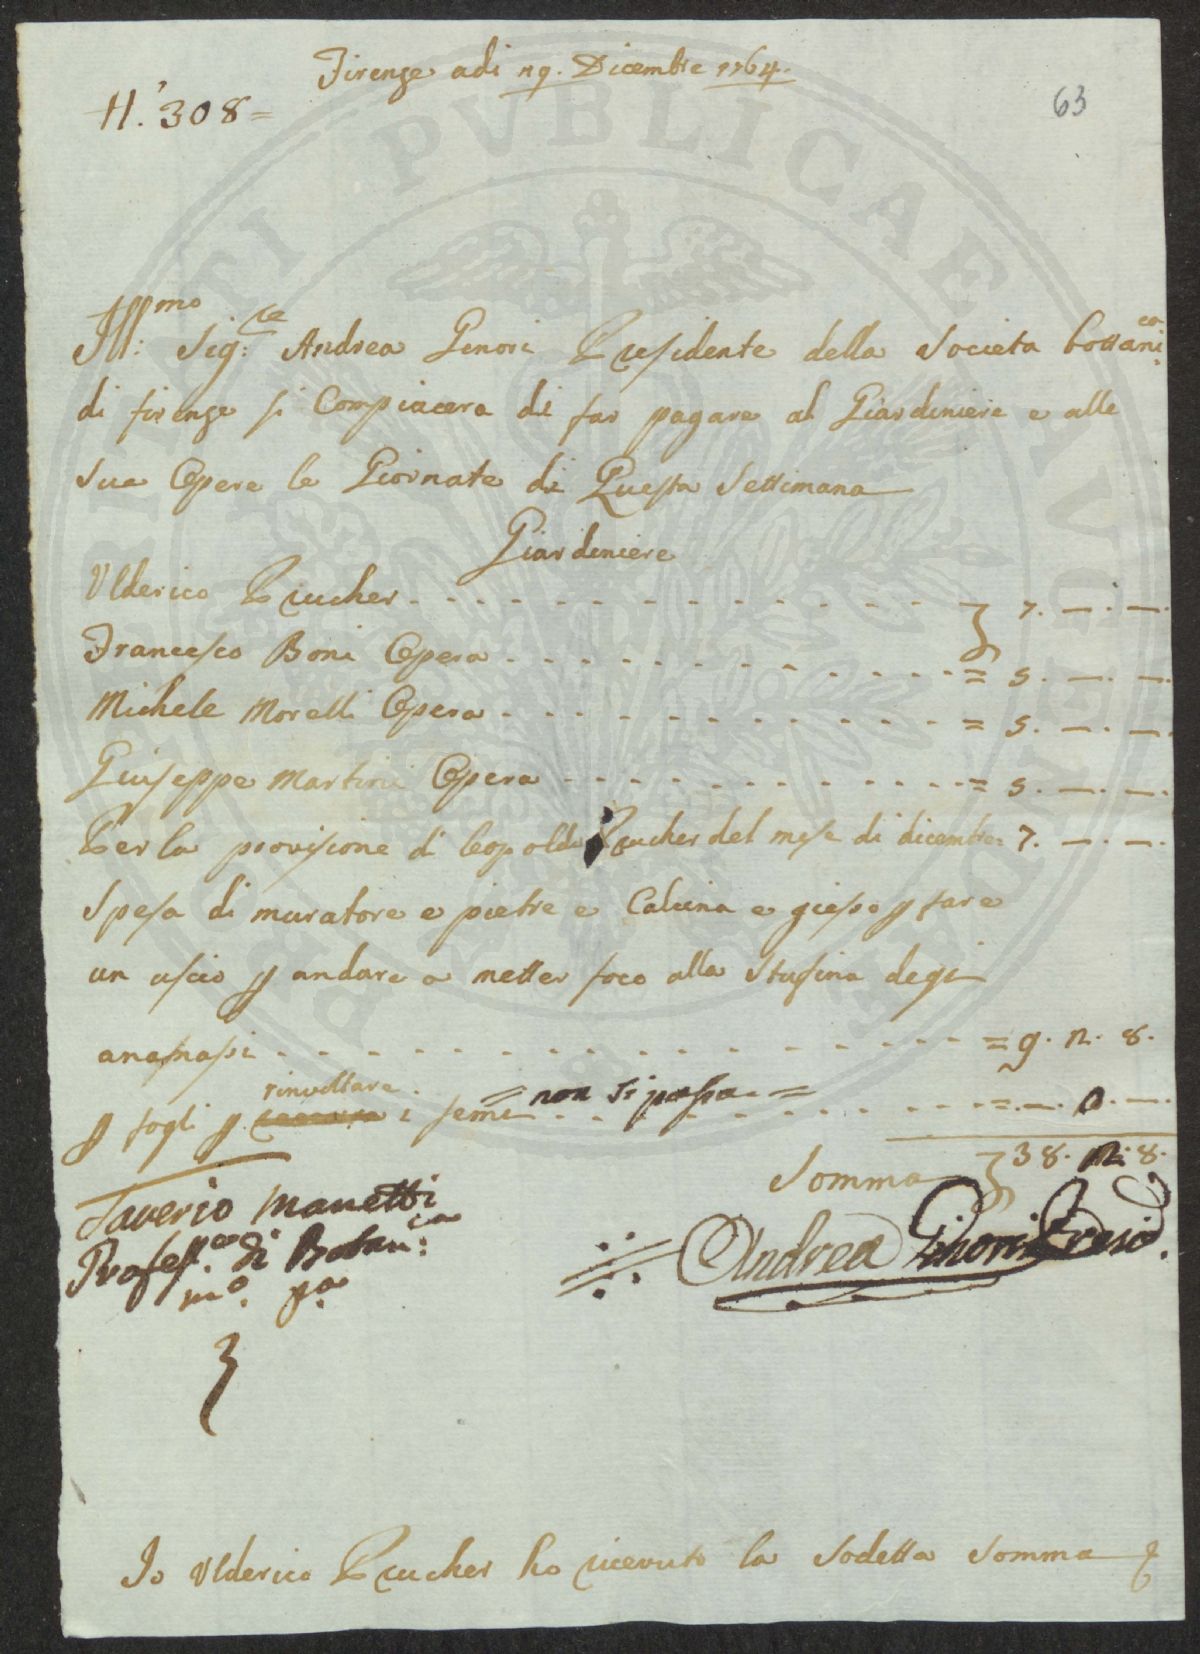 Firenze adi 19. Dicembre 1764.
N.° 308=
63
Ill:mo Sig:re Andrea Ginori Presidente della Societa bottani:ca
di firenze si Compiacera di far pagare al Giardiniere e alle
sue Opere le Giornate di Questa Settimana
Giardiniere
Ulderico Prucher - - - } 7. —. —.
Francesco Boni Opera - - - = 5. —. —.
Michele Morelli Opera - - - = 5. —. —.
Giuseppe Martini Opera - - - = 5. —. —.
Per la provisione di leopoldo Prucher del mese di dicembre= 7. —. —.
Spesa di muratore e pietre e Calcina e gieso p fare
un uscio p andare a metter foco alla Stufina degi
ananassi - - - = 9. 12. 8.
p fogli p. rinvoltare i semi = non si passa = - - - =. —. 0. —.
Somma } 38. 12. 8.
Saverio Manetti
Profess.re di Botani:ca
mo. pa.
Andrea Ginori Presid.
Io Ulderico Prucher ho ricevuto la Sodetta Somma